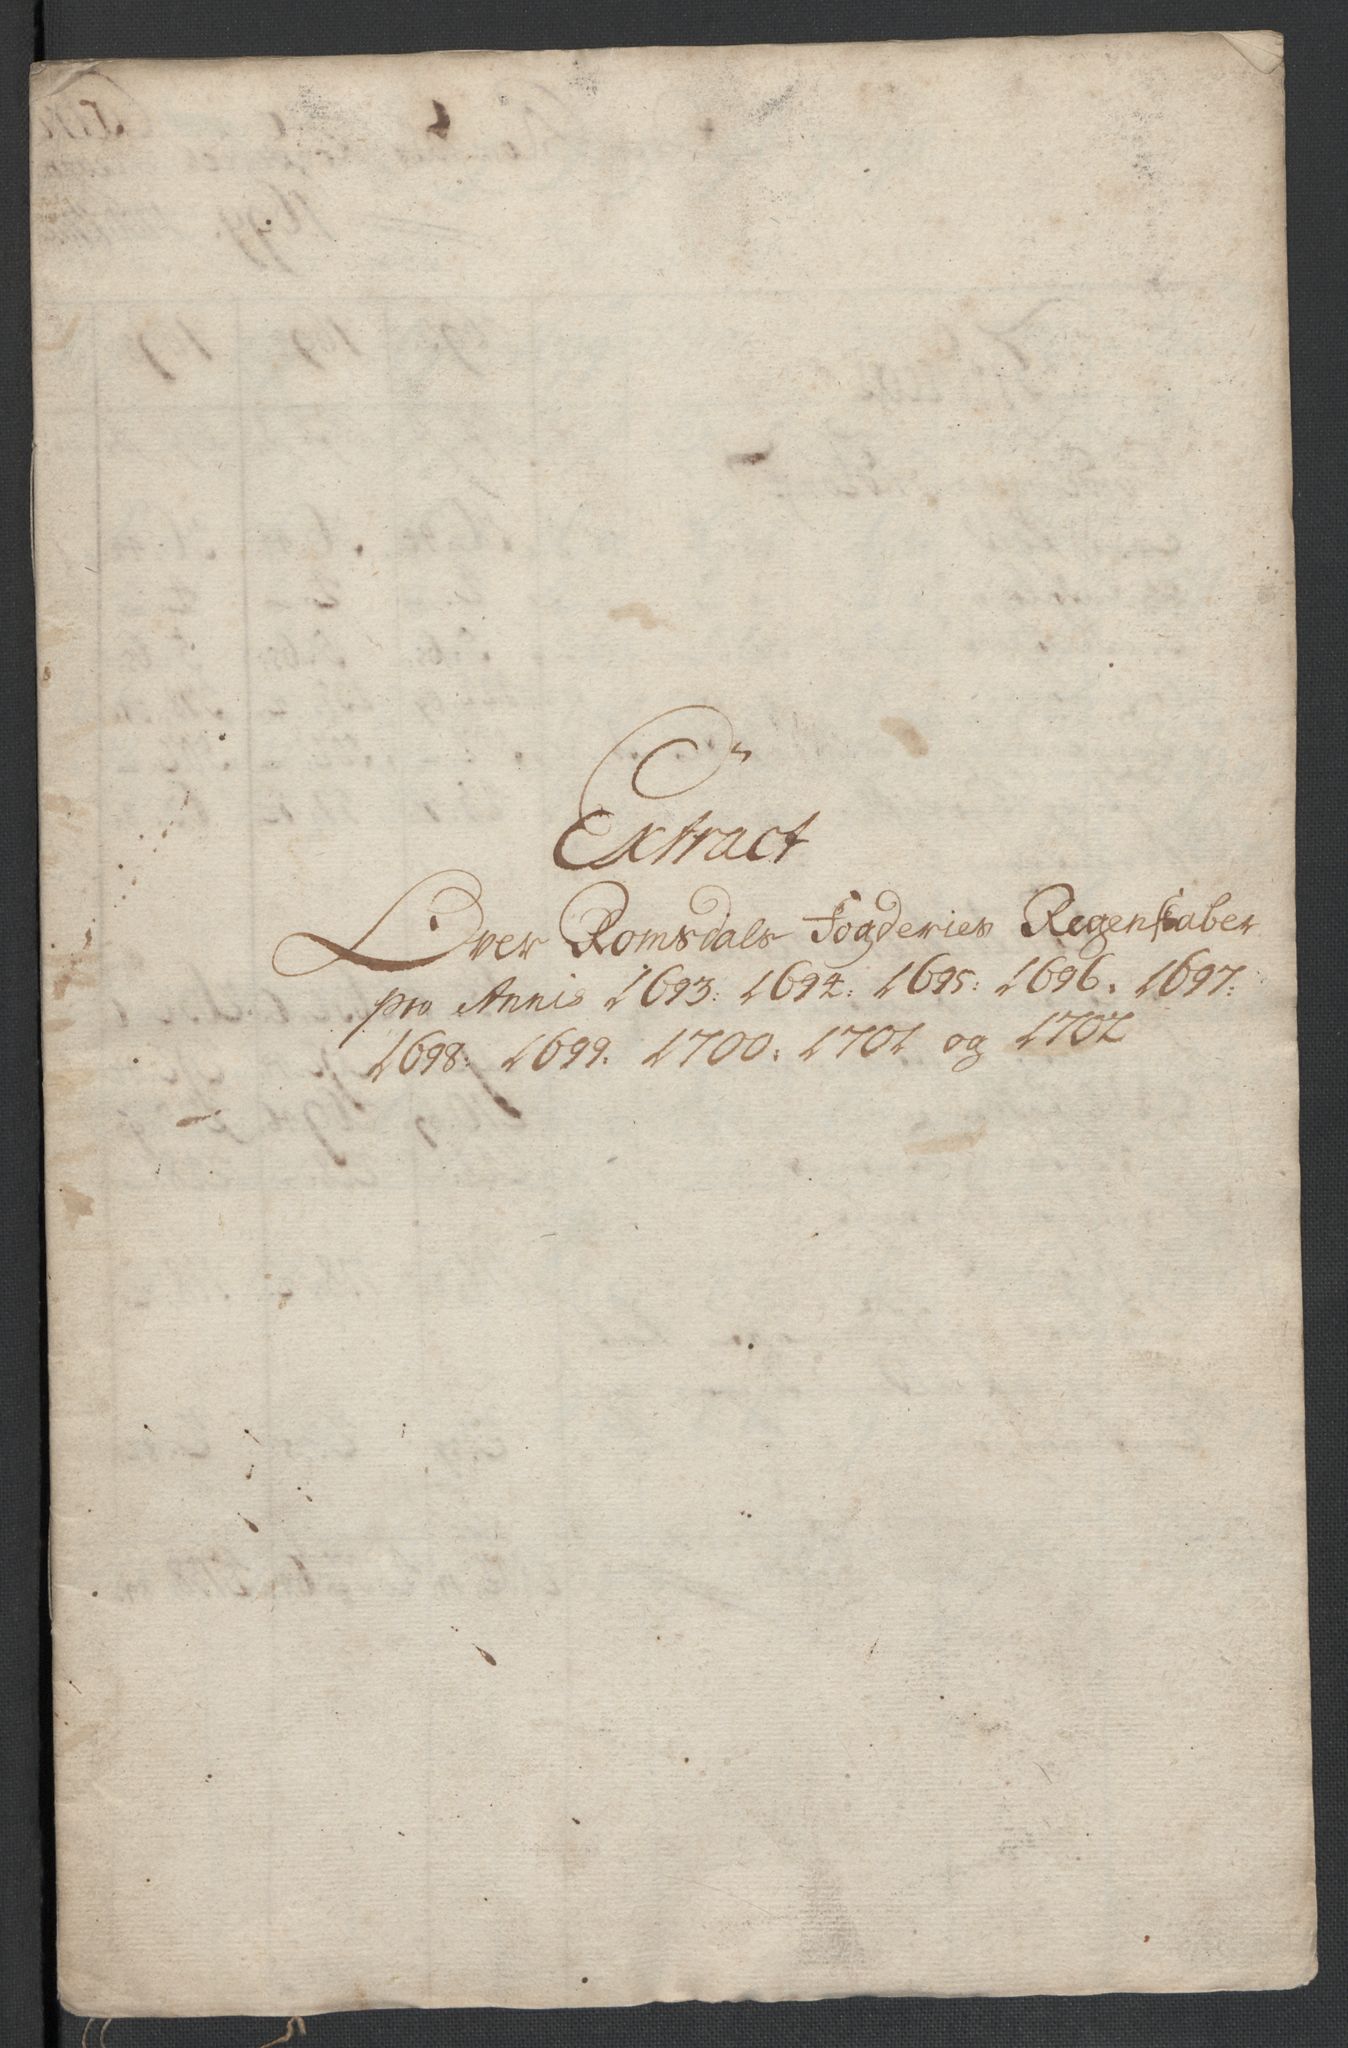 Extract
Over Romsdals Fogderies Regenskaber
pro Annis 1693: 1694: 1695: 1696. 1697:
1698: 1699: 1700: 1701 og 1702